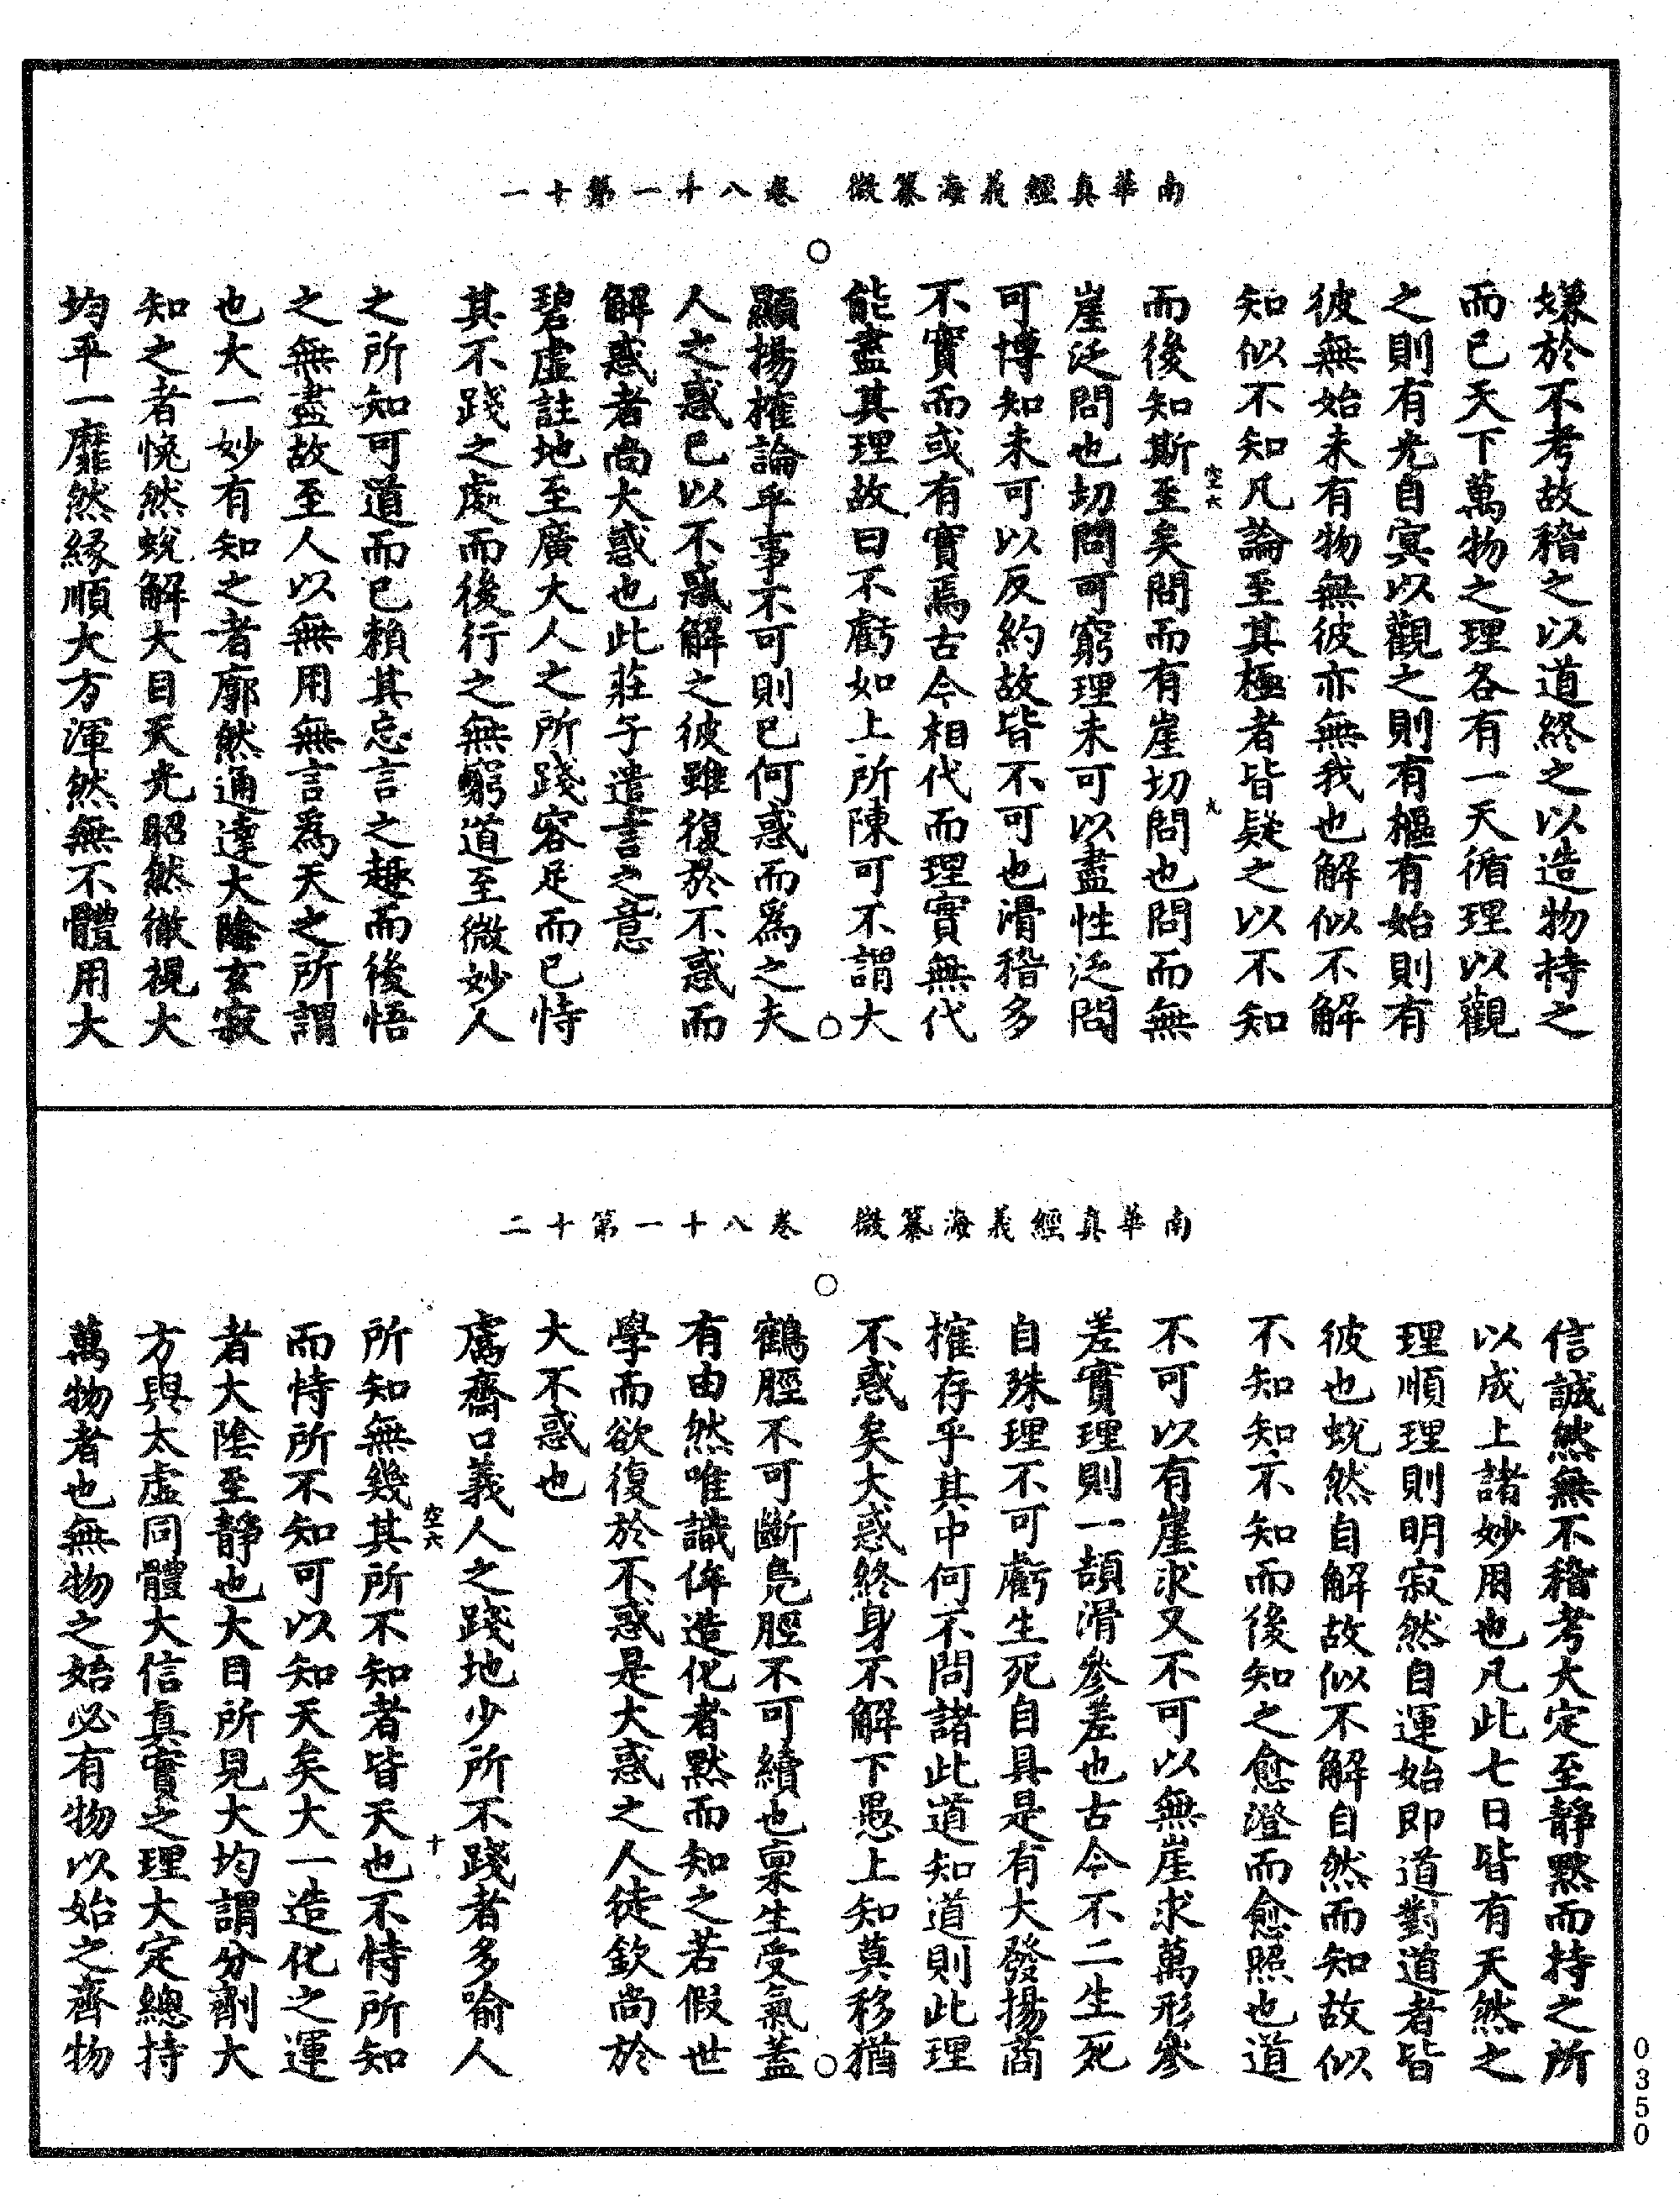 南華真經義海纂微　卷八十一第十一
嫌於不考故稽之以道終之以造物持之
而已天下萬物之理各有一天循理以觀
之則有光自冥以觀之則有樞有始則有
彼無始未有物無彼亦無我也解似不解
知似不知凡論至其極者皆疑之以不知
空六　九
而後知斯至矣問而有崖切問也問而無
崖泛問也切問可窮理未可以盡性泛問
可博知未可以反約故皆不可可也滑稽多
不實而或有實焉古今相代而理實無代
能盡其理故曰不虧如上所陳可不謂大
顯揚搉論乎事不可則已何惑而為之夫
人之惑已以不惑解之彼雖復於不惑而
解惑者尚大惑也此莊子遣言之意
碧虛註地至廣大人之所踐容足而已恃
其不踐之處而後行之無窮道至微妙人
之所知可道而已賴其忘言之趣而後悟
之無盡故至人以無用無言為天之所謂
也大一妙有知之者廓然通達大陰玄寂
知之者怳然蛻解大目天光昭然徹視大
均平一靡然緣順大方渾然無不體用大
南華真經義海纂微　卷八十一第十二
信誠然無不稽考大定至靜默而持之所
以成上諸妙用也凡此七曰皆有天然之
理順理則明寂然自運始即道對道者皆
彼也蛻然自解故似不解自然而知故似
不知知不知而後知之愈澄而愈照也道
不可以有崖求又不可以無崖求萬形參
差實理則一頡滑參差也古今不二生死
自殊理不可虧生死自具是有大發揚商
搉存乎其中何不問諸此道知道則此理
不惑矣大惑終身不解下愚上知莫移猶
鶴脛不可斷鳧脛不可續也稟生受氣蓋
有由然唯識侔造化者默而知之若假世
學而欲復於不惑是大惑之人徒欽尚於
大不惑也
鬳齋口義人之踐地少所不踐者多喻人
空六　十
所知無幾其所不知者皆天也不恃所知
而恃所不知可以知天矣大一造化之運
者大陰至靜也大目所見大均謂分劑大
方與太虛同體大信真實之理大定總持
萬物者也無物之始必有物以始之齊物
0350